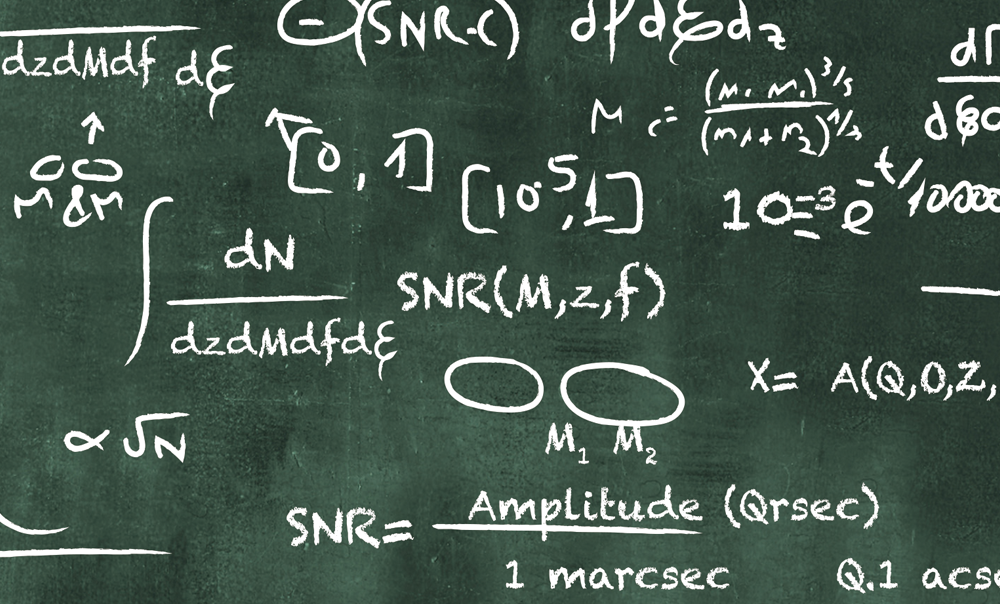 Θ(SNR-C) dfdξdz
dzdMdf dξ
M c = (M. M.)^3/5 / (m1+m2)^1/
[0, 1]
[10^-5, 1]
10^=3 e^-t/10000
M&M
∫ dN / dzdMdfdξ
SNR(M,z,f)
X= A(Q,O,Z,
M₁ M₂
∝ √N
SNR= Amplitude (Qrsec)
1 marcsec Q.1 acs